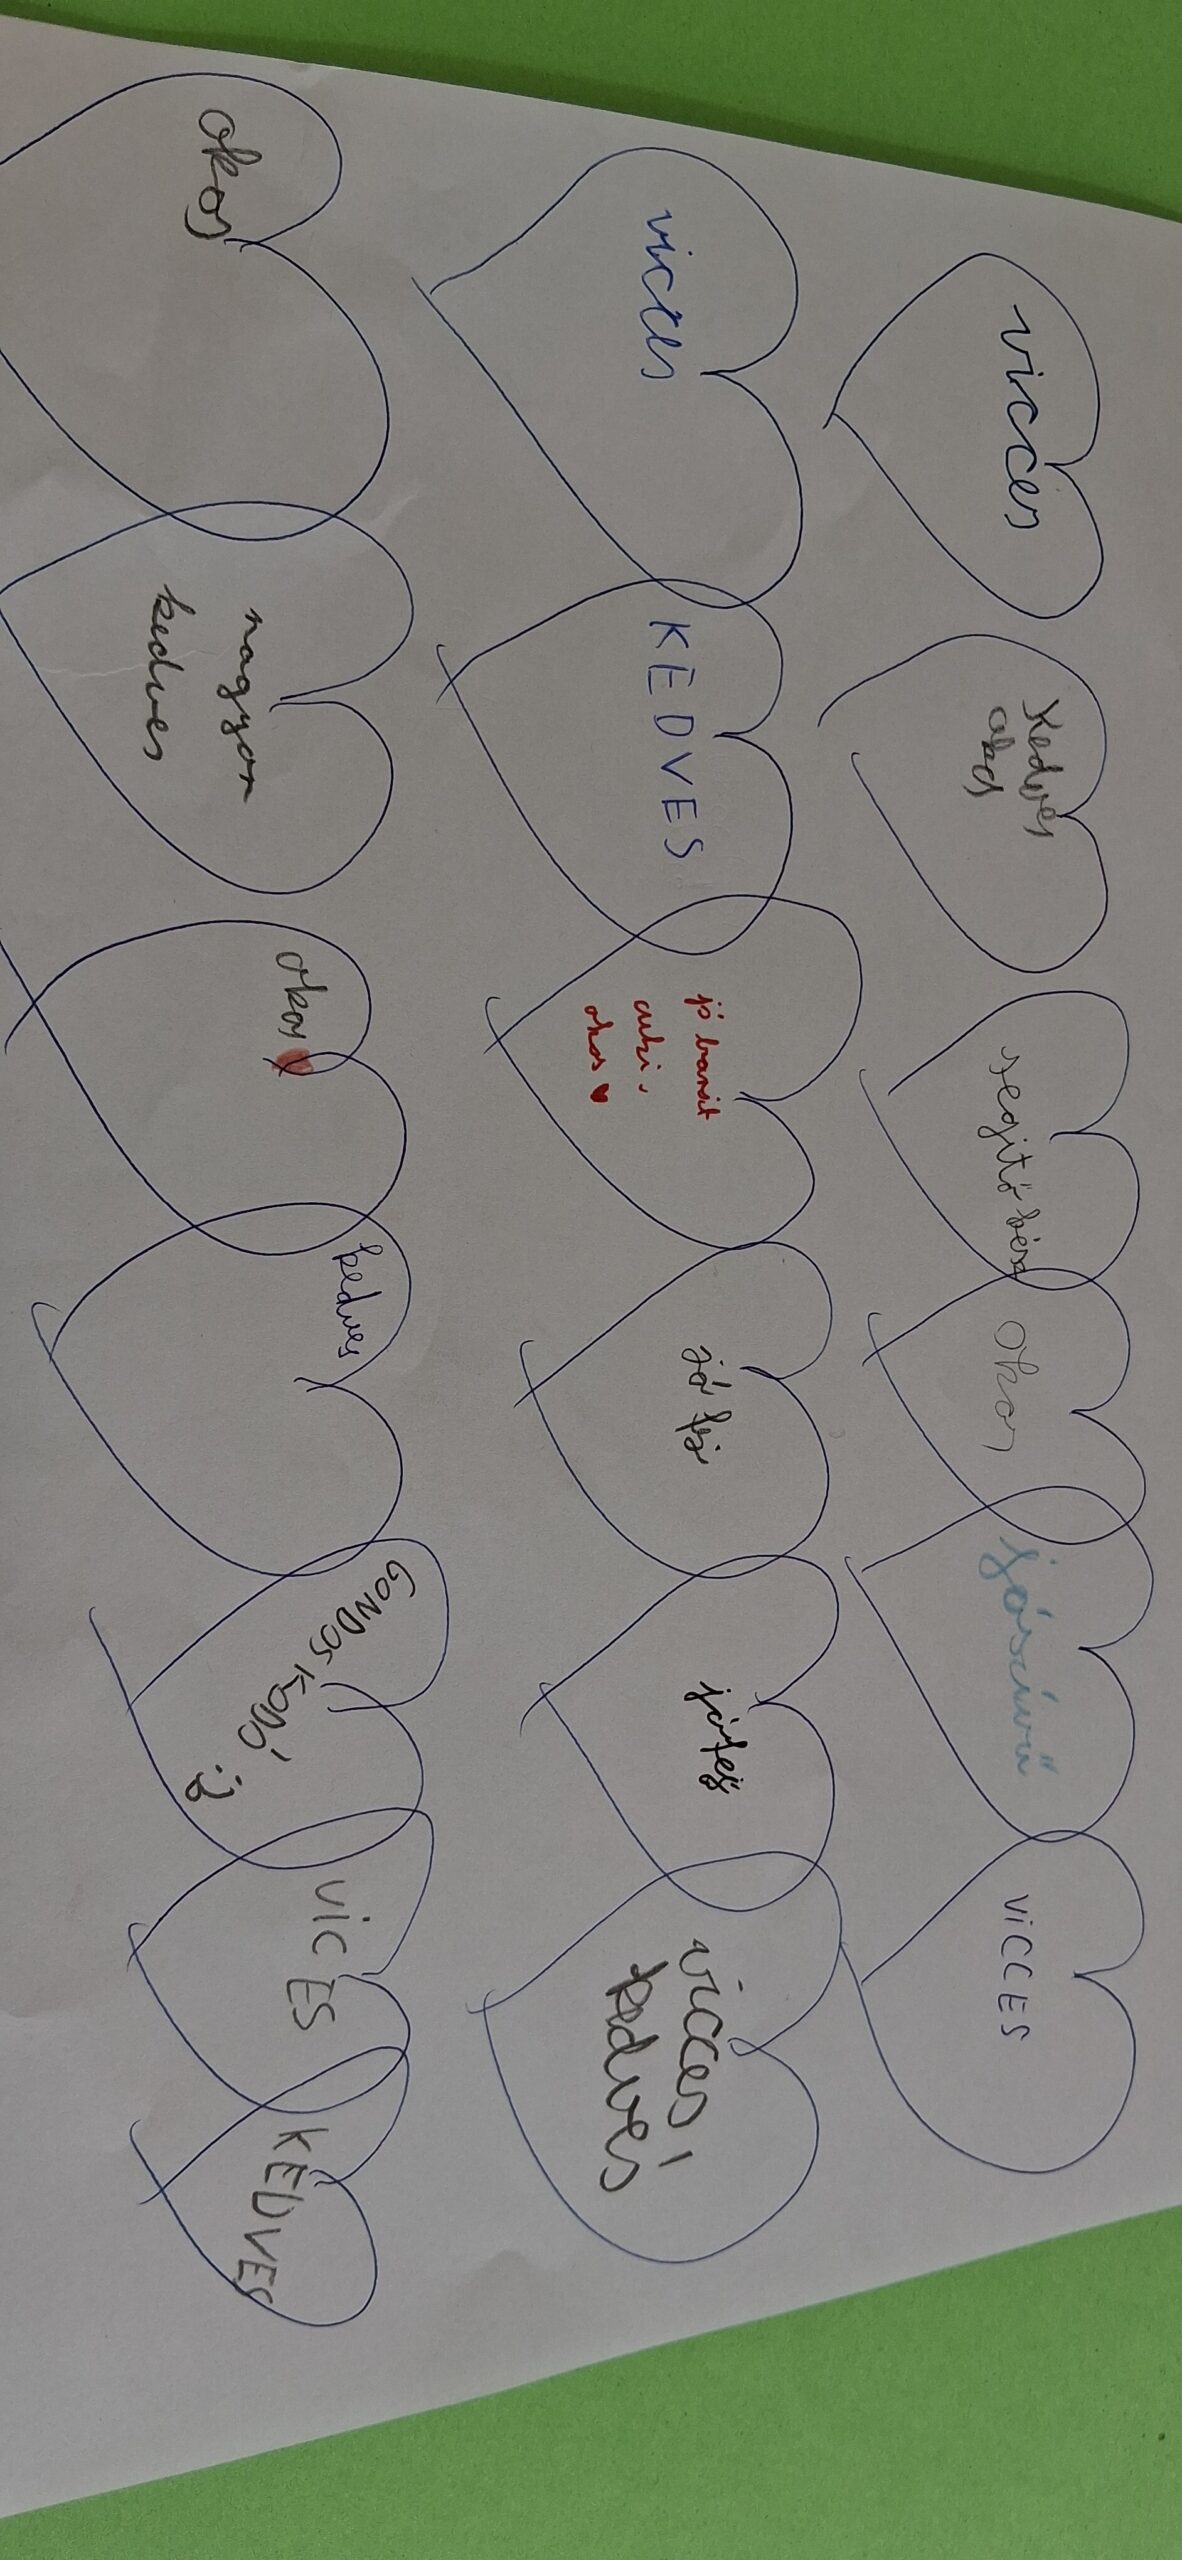 vicces
Kedves
okos
segitőkész
okos
jószívű
VICCES
vicces
KEDVES
jó barát
cuki,
okos ♥
jó fej
jófej
vicces,
kedves
okos
nagyon
kedves
okos ♥
kedves
GONDOSKODÓ :)
VICES
KEDVES